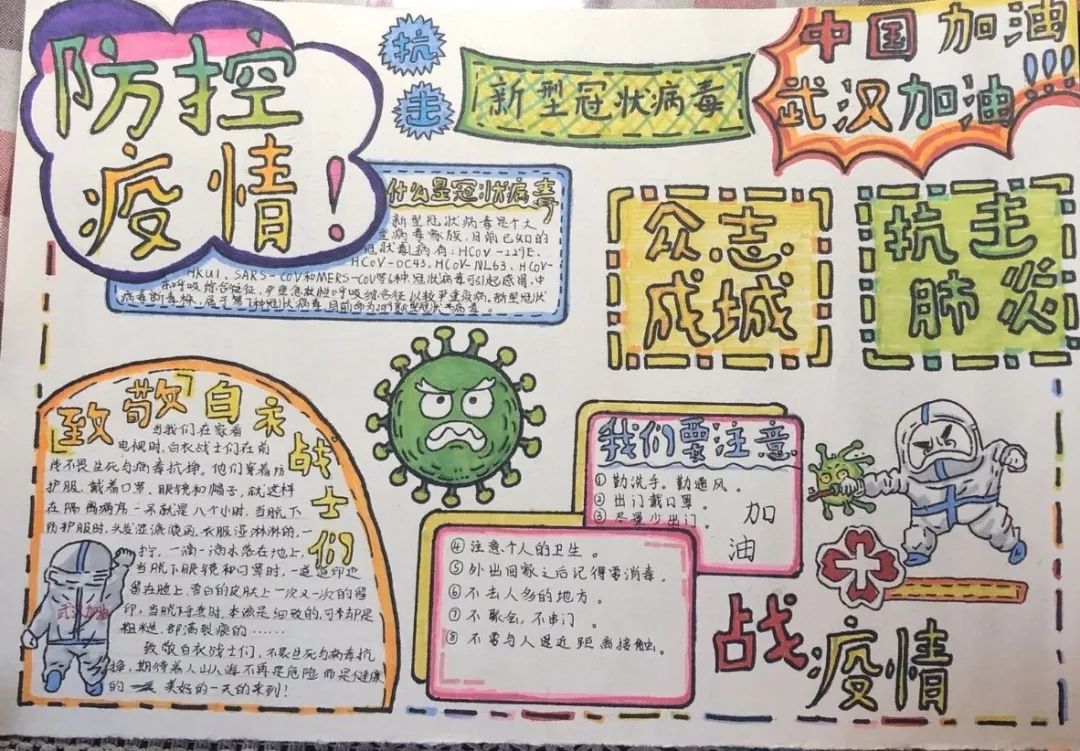 防控
疫情!
抗
击
新型冠状病毒
中国加油
武汉加油!!!
什么是冠状病毒
新型冠状病毒是个大
型病毒家族,目前已知的
冠状毒病有:HCoV-229E、
HCoV-OC43、HCoV-NL63、HCoV-
HKU1、SARS-CoV和MERS-CoV等6种,冠状病毒可引起感冒、中
呼吸综合征
病毒新毒株,属于第7种冠状病毒,目前命为2019新型冠状病毒。
众志
成城
抗击
肺炎
致敬「白衣
战士们
当我们在家看
电视时,白衣战士们在前
线不畏生死与病毒抗挣。他们穿着防
护服,戴着口罩、眼镜和帽子,就这样
在隔离病房一呆就是八个小时,当脱下
防护服时,头发湿漉漉滴,衣服湿淋淋的,一
拧,一滴一滴水落在地上,
当脱下眼镜和口罩时,一道道印迹
留在脸上,雪白的皮肤上一次又一次的留
印,当脱下手套时,本该是细致的,可干却是
粗糙,都满裂痕的……
致敬白衣战士们,不畏生死与病毒抗
挣,期待着人山人海不再是危险而是健康
的 美好的一天的来到!
武汉加油
我们要注意
①勤洗手。勤通风。
②出门戴口罩。
③尽量少出门。
加
油
④注意个人的卫生。
⑤外出回家之后记得需消毒。
⑥不去人多的地方。
⑦不聚会,不串门。
⑧不要与人过近距离接触。
战疫情